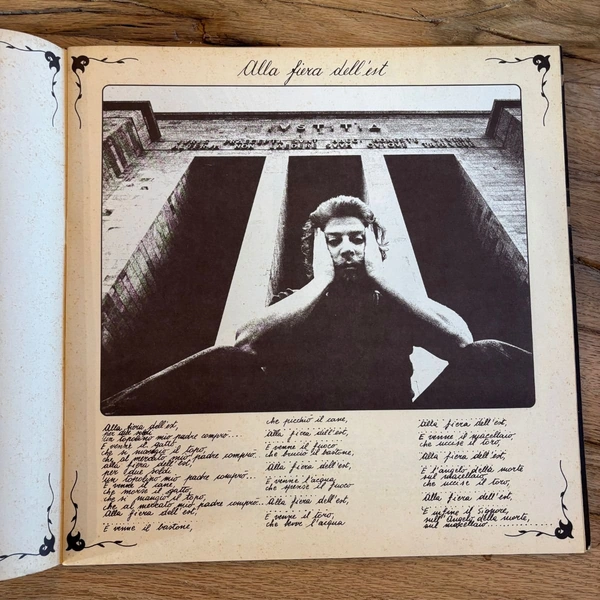 Alla fiera dell'est
IVSTITIA
Alla fiera dell'est,
per due soldi
un topolino mio padre comprò...
E venne il gatto,
che si mangiò il topo,
che al mercato mio padre comprò
alla fiera dell'est,
per due soldi
un topolino mio padre comprò...
E venne il cane,
che morse il gatto,
che si mangiò il topo,
che al mercato mio padre comprò...
Alla fiera dell'est,
E venne il bastone,
che picchiò il cane,
Alla fiera dell'est,
E venne il fuoco
che bruciò il bastone,
Alla fiera dell'est,
E venne l'acqua
che spense il fuoco
Alla fiera dell'est,
E venne il toro,
che bevve l'acqua
Alla fiera dell'est,
E venne il macellaio,
che uccise il toro,
Alla fiera dell'est,
E l'angelo della morte
sul macellaio,
che uccise il toro,
Alla fiera dell'est,
E infine il Signore,
sull'angelo della morte,
sul macellaio